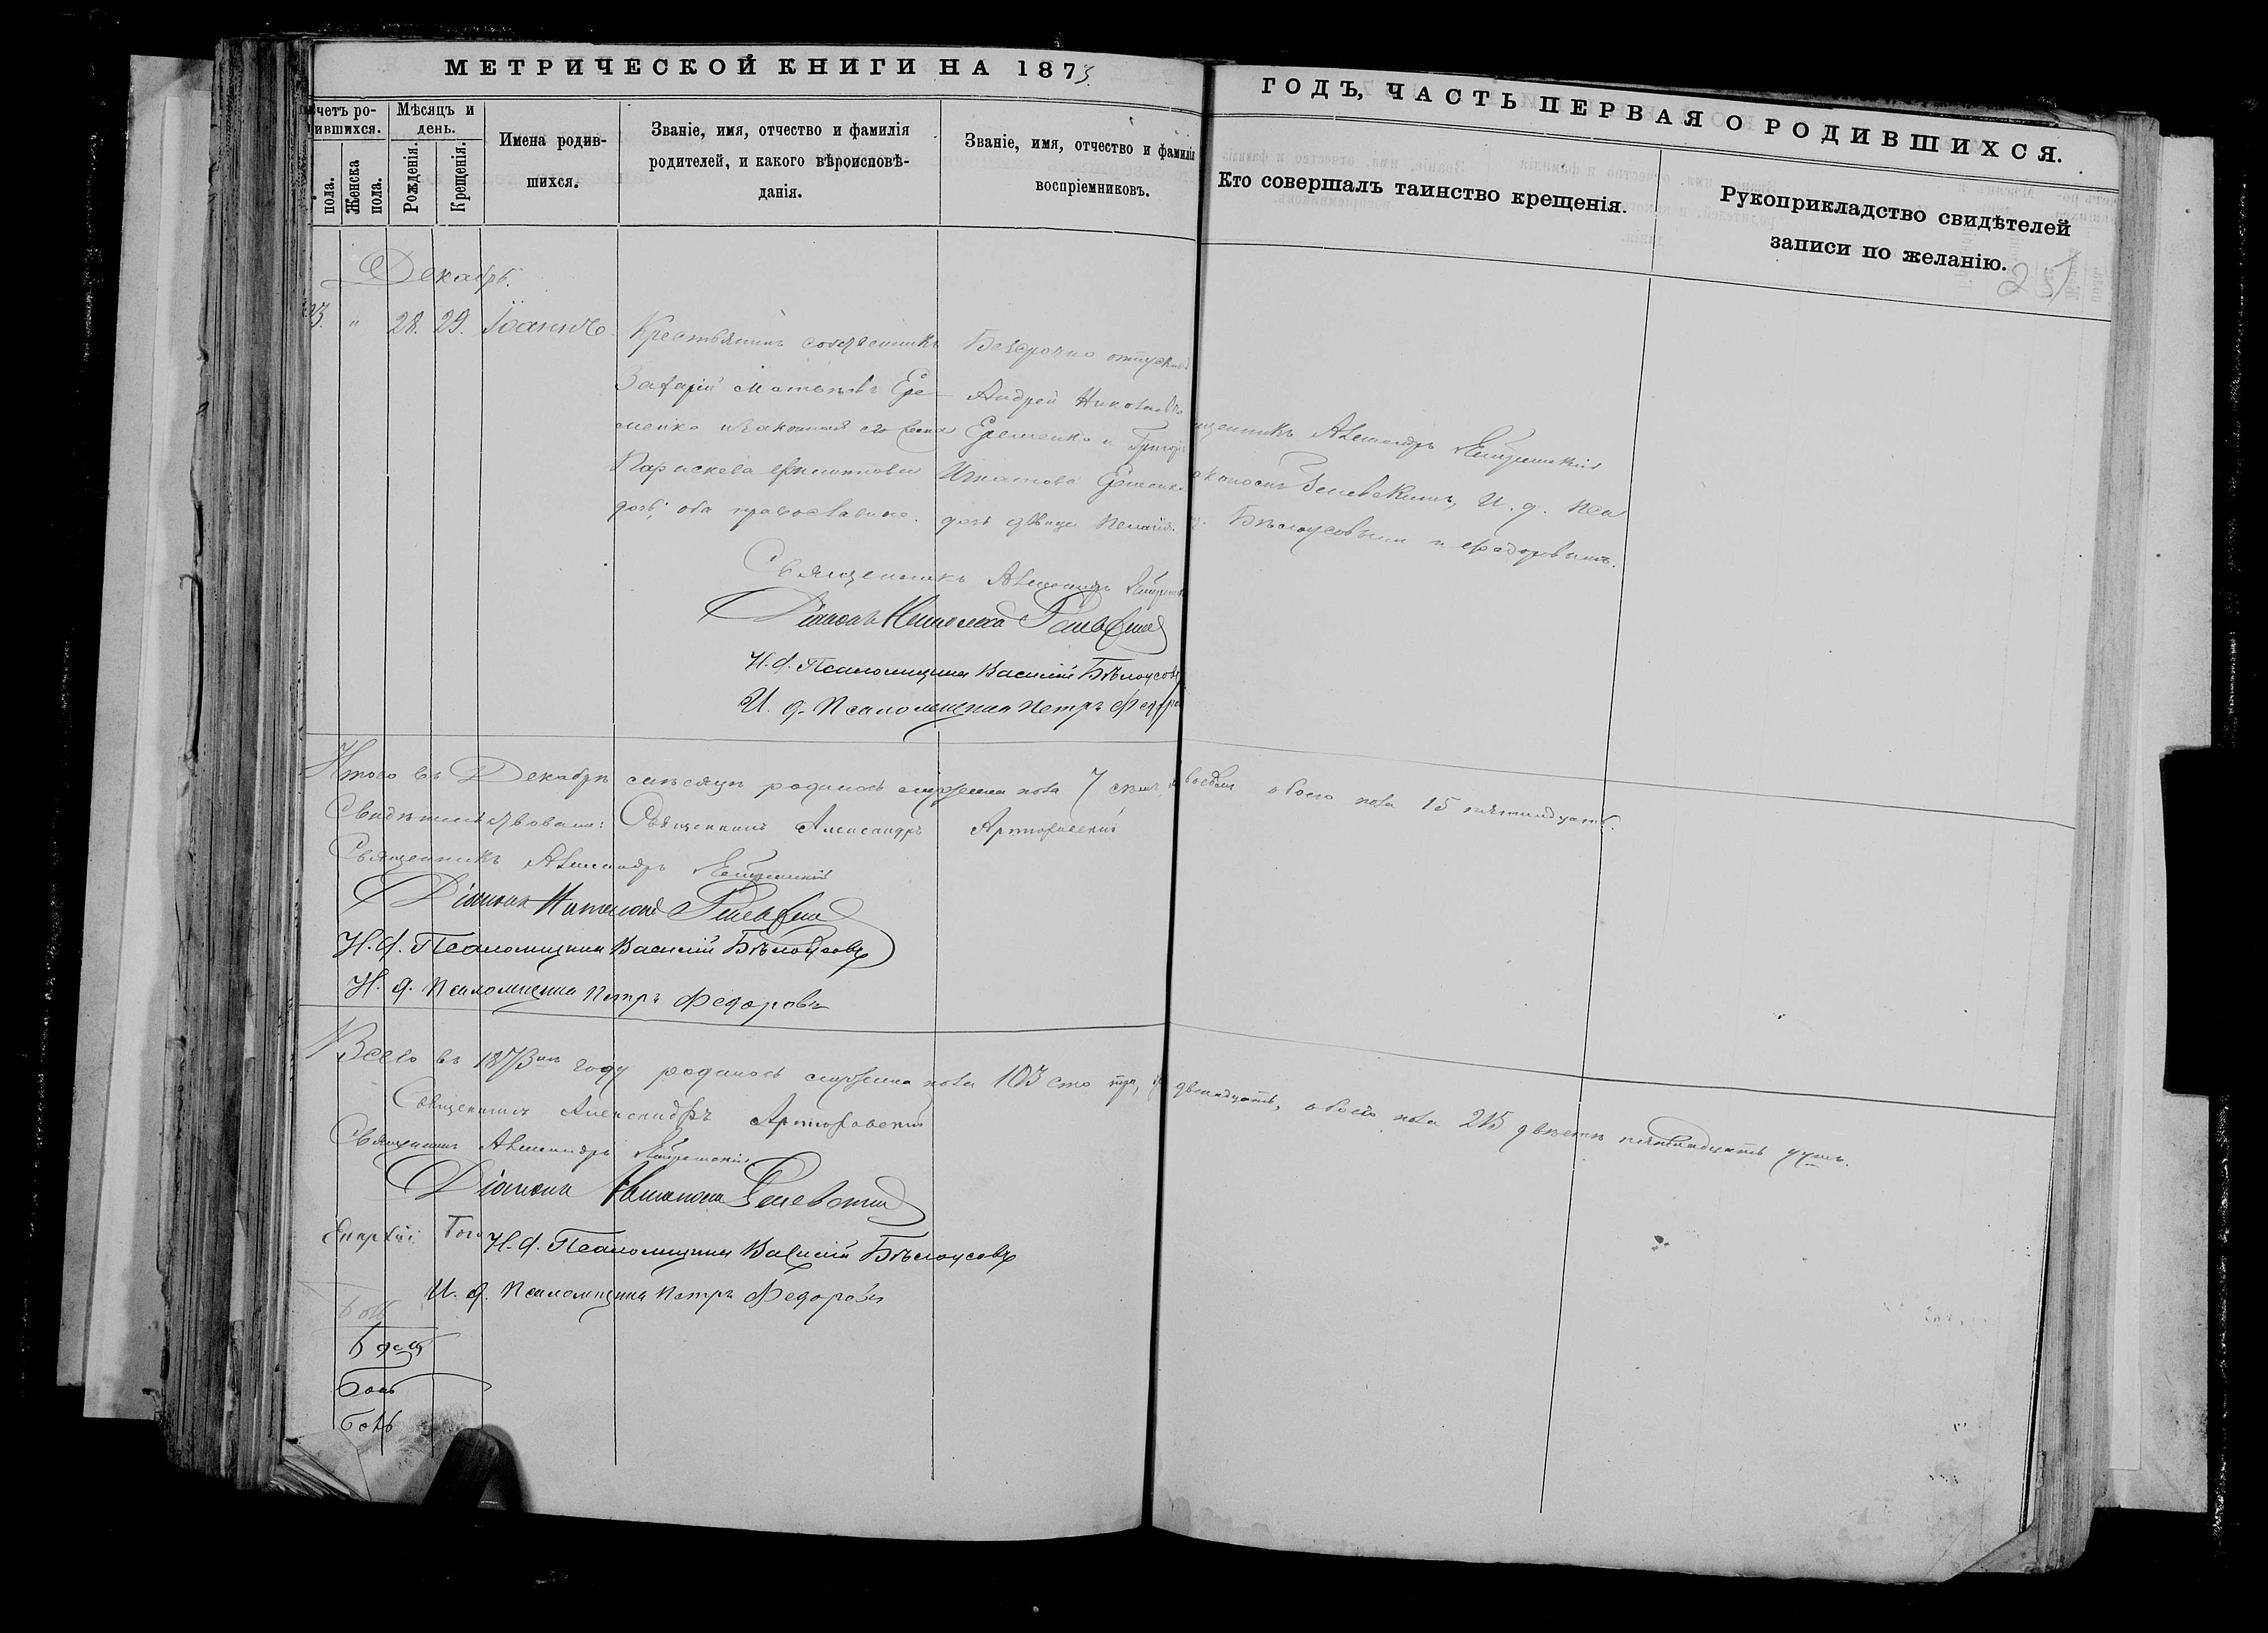 МЕТРИЧЕСКОЙ КНИГИ НА 1873.
ГОДЪ, ЧАСТЬ ПЕРВАЯ О РОДИВШИХСЯ.
четъ ро-
ившихся.
пола.
Женска
пола.
Мѣсяцъ и
день.
Рожденія.
Крещенія.
Имена родив-
шихся.
Званіе, имя, отчество и фамилія
родителей, и какого вѣроисповѣ-
данія.
Званіе, имя, отчество и фамилія
воспріемниковъ.
Кто совершалъ таинство крещенія.
Рукоприкладство свидѣтелей
записи по желанію.
Декабрь.
28. 29. Іоаннъ
Крестьянинъ собственникъ
Захарій Матвѣевъ Ере-
менко и законная его жена
Параскева Филиппова
дочь, оба православные.
Безсрочно отпускной
Андрей Николаевъ
Еременко и Григорія
Игнатова Еременка
дочь дѣвица Пелагія.
щенникъ Александръ
И. д. Пса
Бѣлоусовымъ и Федоровымъ.
Священникъ Александръ
Діаконъ
И. д. Псаломщика Василій Бѣлоусовъ
И. д. Псаломщика Петръ Федоро
Итого въ Декабрѣ мѣсяцѣ родилось мужеска пола 7 семь, восемь обоего пола 15 пятнадцать.
Свидѣтельствовали: Священникъ Александръ
Священникъ Александръ
Діаконъ
И. д. Псаломщика Василій Бѣлоусовъ
И. д. Псаломщика Петръ Федоровъ
Всего въ 1873мъ году родилось мужеска пола 103 сто три, двѣнадцать, обоего пола 215 двѣсти пятнадцать душъ.
Священникъ Александръ
Священникъ Александръ
Діаконъ
И. д. Псаломщика Василій Бѣлоусовъ
И. д. Псаломщика Петръ Федоровъ